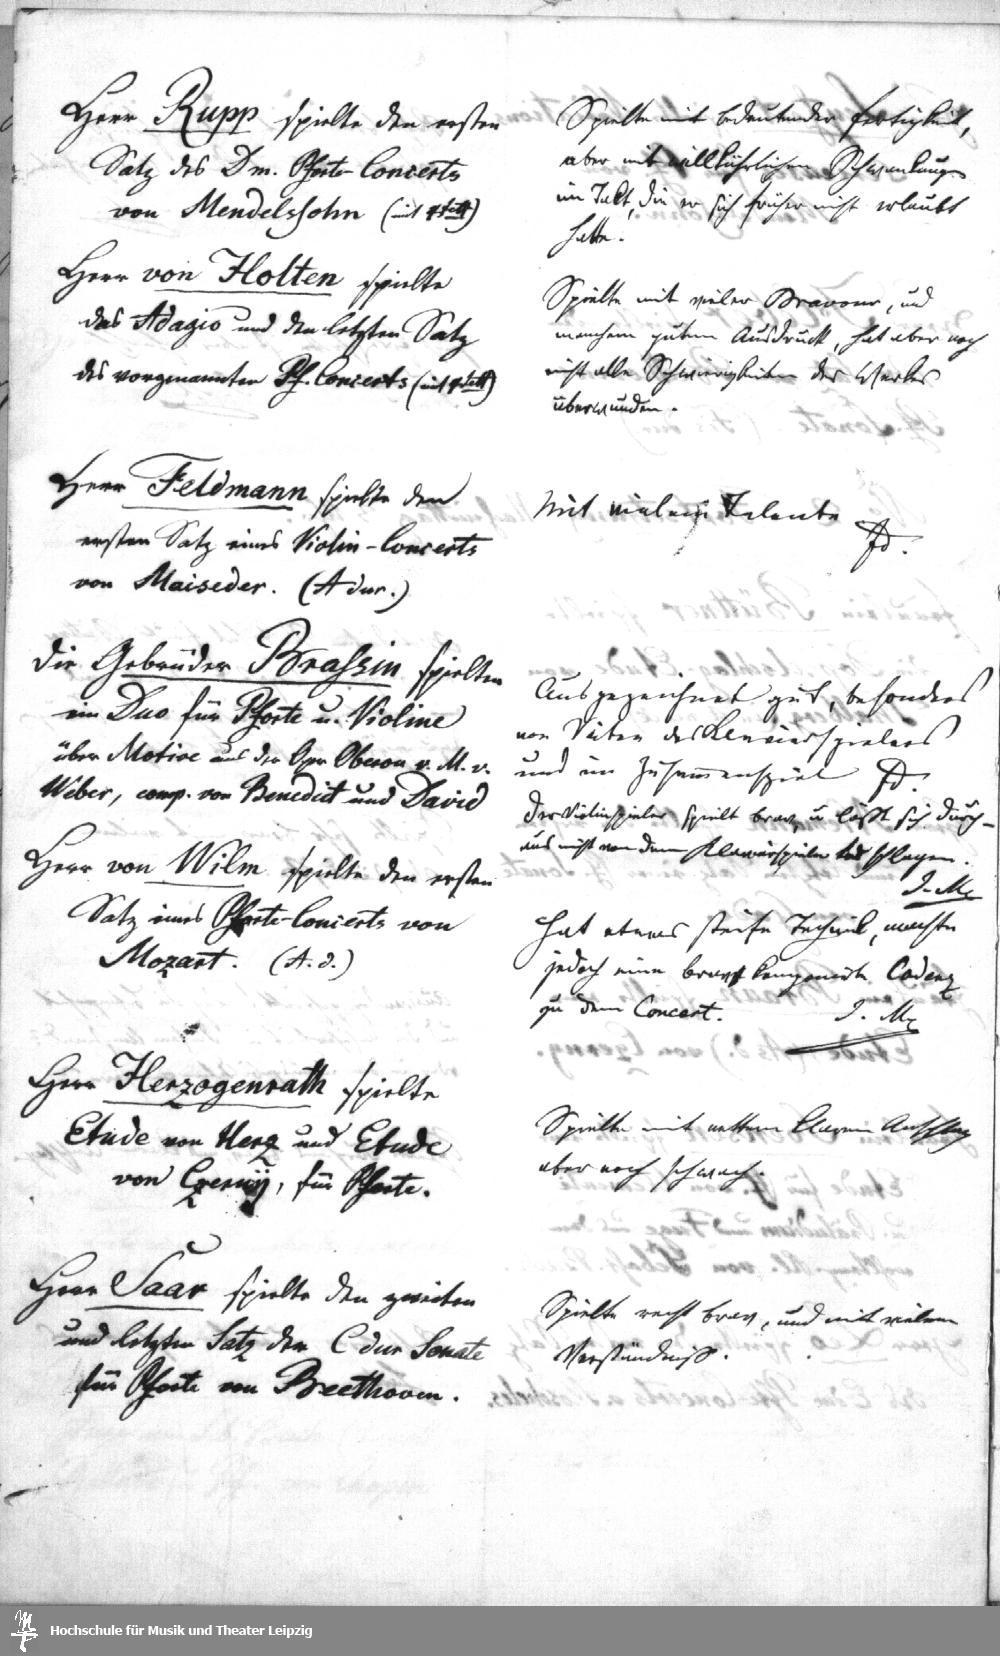 Herr Rupp spielte den ersten
Satz des Dm. Pforte-Concerts
von Mendelssohn (mit 4tett)
Spielte mit bedeutender Fertigkeit,
aber mit willkührlichen Schwankungen
im Takt, die er sich früher nicht erlaubt
hatte.
Herr von Holten spielte
das Adagio und den letzten Satz
des vorgenannten Pf. Concerts (mit 4tett)
Spielte mit vieler Bravour, und
manchem gutem Ausdruck, hat aber noch
nicht alle Schwierigkeiten des Werkes
überwunden.
Herr Feldmann spielte den
ersten Satz eines Violin-Concerts
von Maiseder. (A dur.)
Mit vielem Talente
FD.
Die Gebrüder Brassin spielten
ein Duo für Pforte u. Violine
über Motive aus der Oper Oberon v. M. v.
Weber, comp. von Benedict und David
Ausgezeichnet gut, besonders
von Seiten des Klavierspielers
und im Zusammenspiel FD.
Der Violinspieler spielt brav, u läßt sich durch-
aus nicht von dem Klavierspieler todt schlagen.
I. M.
Herr von Wilm spielte den ersten
Satz eines Pforte-Concerts von
Mozart. (A. d.)
Hat etwas steife Technik, machte
jedoch eine brav komponirte Cadenz
zu dem Concert. I. M.
Herr Herzogenrath spielte
Etude von Herz und Etude
von Czerny, für Pforte.
Spielte mit nettem klarem Anschlag
aber noch schwach.
Herr Saar spielte den zweiten
und letzten Satz der C dur Sonate
für Pforte von Beethoven.
Spielte recht brav, und mit vielem
Verständniß.
Hochschule für Musik und Theater Leipzig